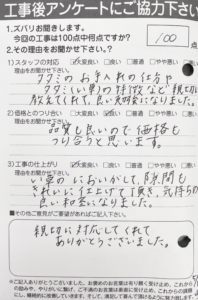 工事後アンケートにご協力下さい
1.ズバリお聞きします。
今回の工事は100点中何点ですか?
100 点
2.その理由をお聞かせ下さい。
1)スタッフの対応 ☑大変良い □良い □普通 □やや悪い
理由をお聞かせ下さい。
タタミのお手入れの仕方や
タタミ(い草)の特徴など親切に
教えてくれて、良い勉強になりました。
2)価格とのつり合い ☑大変良い □良い □普通 □やや悪い
理由をお聞かせ下さい。
品質も良いので価格も
つり合うと思います。
3)工事の仕上がり ☑大変良い □良い □普通 □やや悪い
理由をお聞かせ下さい。
い草のにおいがして、隙間も
きれいに仕上げて頂き、気持ちの
良い和室になりました。
■その他ご意見がありましたらご記入下さい。
親切に対応してくれて
ありがとうございました。